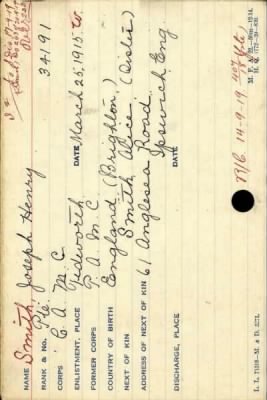 NAME Smith Joseph Henry
RANK & No. Pte. 34191
CORPS C. A. M. C.
ENLISTMENT, PLACE Tidworth DATE March 25, 1915
FORMER CORPS P. A. M. C
COUNTRY OF BIRTH England (Brighton)
NEXT OF KIN Smith Alice (Sister)
ADDRESS OF NEXT OF KIN 61 Anglesea Road
Ipswich Eng
DISCHARGE, PLACE DATE
R/B 14-9-19
M. F. W.
H. Q.
L. L.